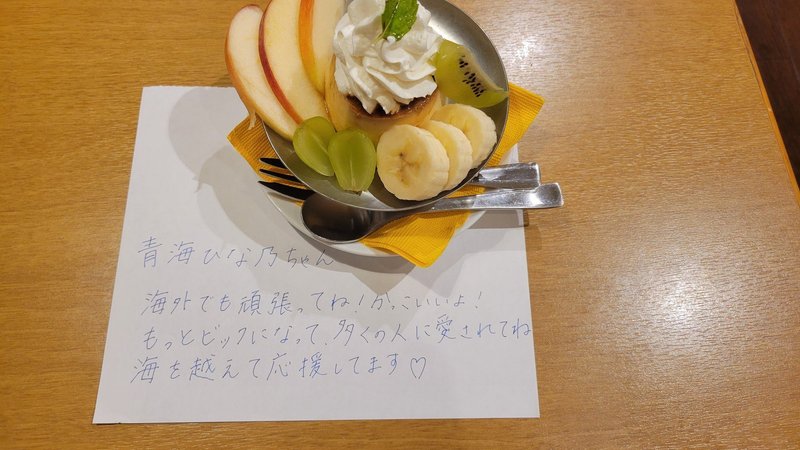 青海ひな乃ちゃん
海外でも頑張ってね！かっこいいよ！
もっとビックになって、多くの人に愛されてね
海を越えて応援してます♡